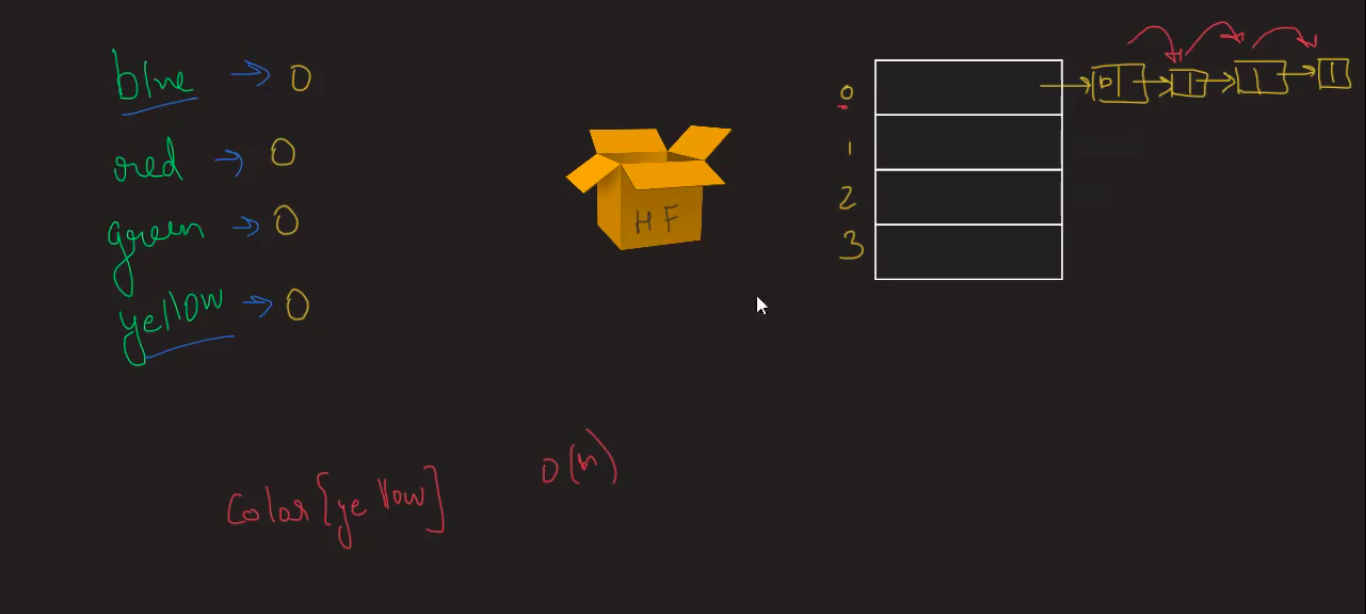 blue → 0
red → 0
green → 0
yellow → 0
HF
0
1
2
3
Color[yellow]
O(n)